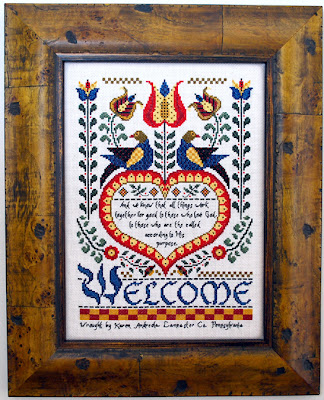 And we know that all things work
together for good to those who love God,
to those who are the called
according to His
purpose.
WELCOME
Wrought by Karen Andreola Lancaster Co. Pennsylvania